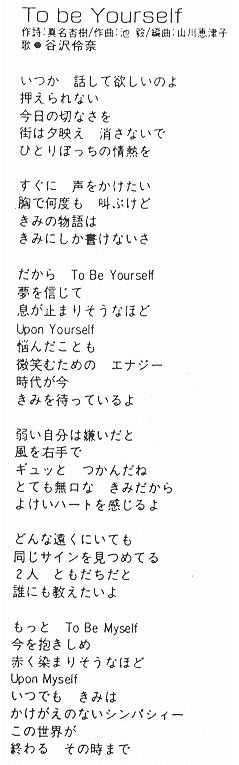 To be Yourself
作詩:真名杏樹/作曲:池 毅/編曲:山川恵津子
歌●谷沢伶奈
いつか 話して欲しいのよ
押えられない
今日の切なさを
街は夕映え 消さないで
ひとりぼっちの情熱を
すぐに 声をかけたい
胸で何度も 叫ぶけど
きみの物語は
きみにしか書けないさ
だから To Be Yourself
夢を信じて
息が止まりそうなほど
Upon Yourself
悩んだことも
微笑むための エナジー
時代が今
きみを待っているよ
弱い自分は嫌いだと
風を右手で
ギュッと つかんだね
とても無口な きみだから
よけいハートを感じるよ
どんな遠くにいても
同じサインを見つめてる
2人 ともだちだと
誰にも教えたいよ
もっと To Be Myself
今を抱きしめ
赤く染まりそうなほど
Upon Myself
いつでも きみは
かけがえのないシンパシィー
この世界が
終わる その時まで